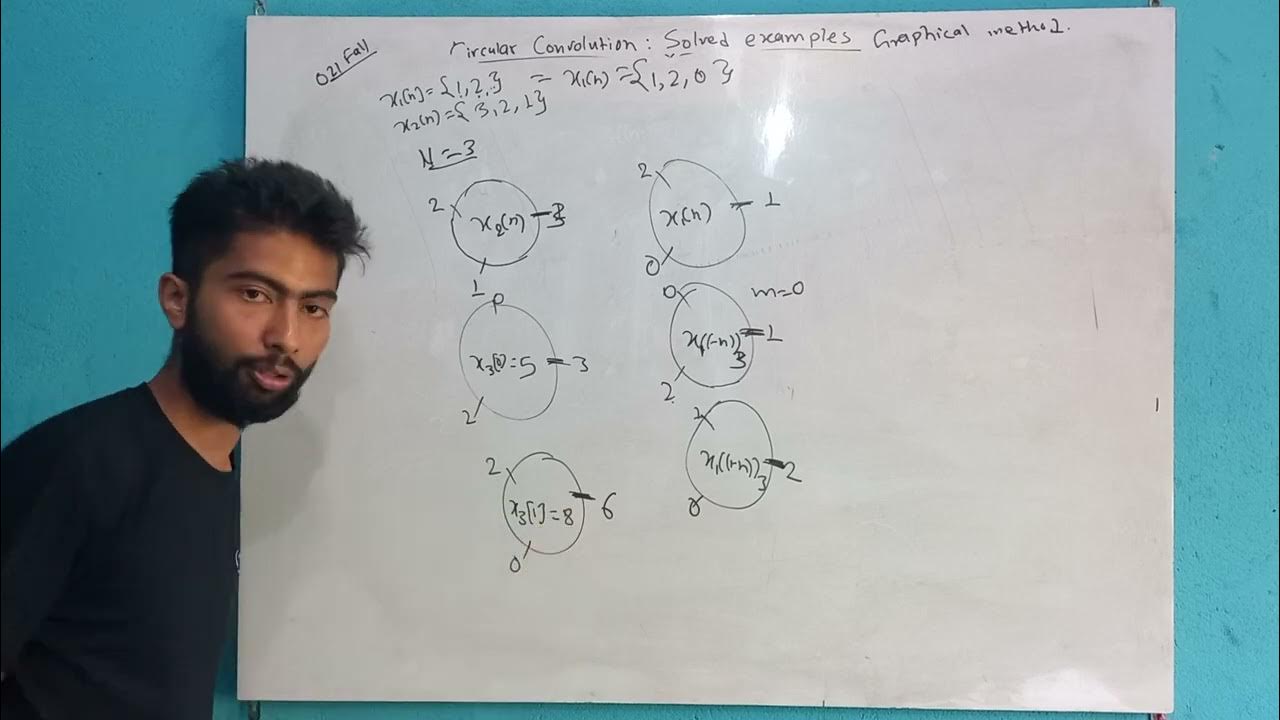 021 Fall
Circular Convolution: Solved examples Graphical method.
x₁(n) = {1, 2,} = x₁(n) = {1, 2, 0}
x₂(n) = {3, 2, 1}
N = 3
2 x₂(n) 3
1
2 x₁(n) 1
0
0 m=0
x₁((-n))₃ 1
2
0
x₃[0] = 5 3
2
1
x₁((1-n))₃ 2
0
2
x₃[1] = 8 6
0